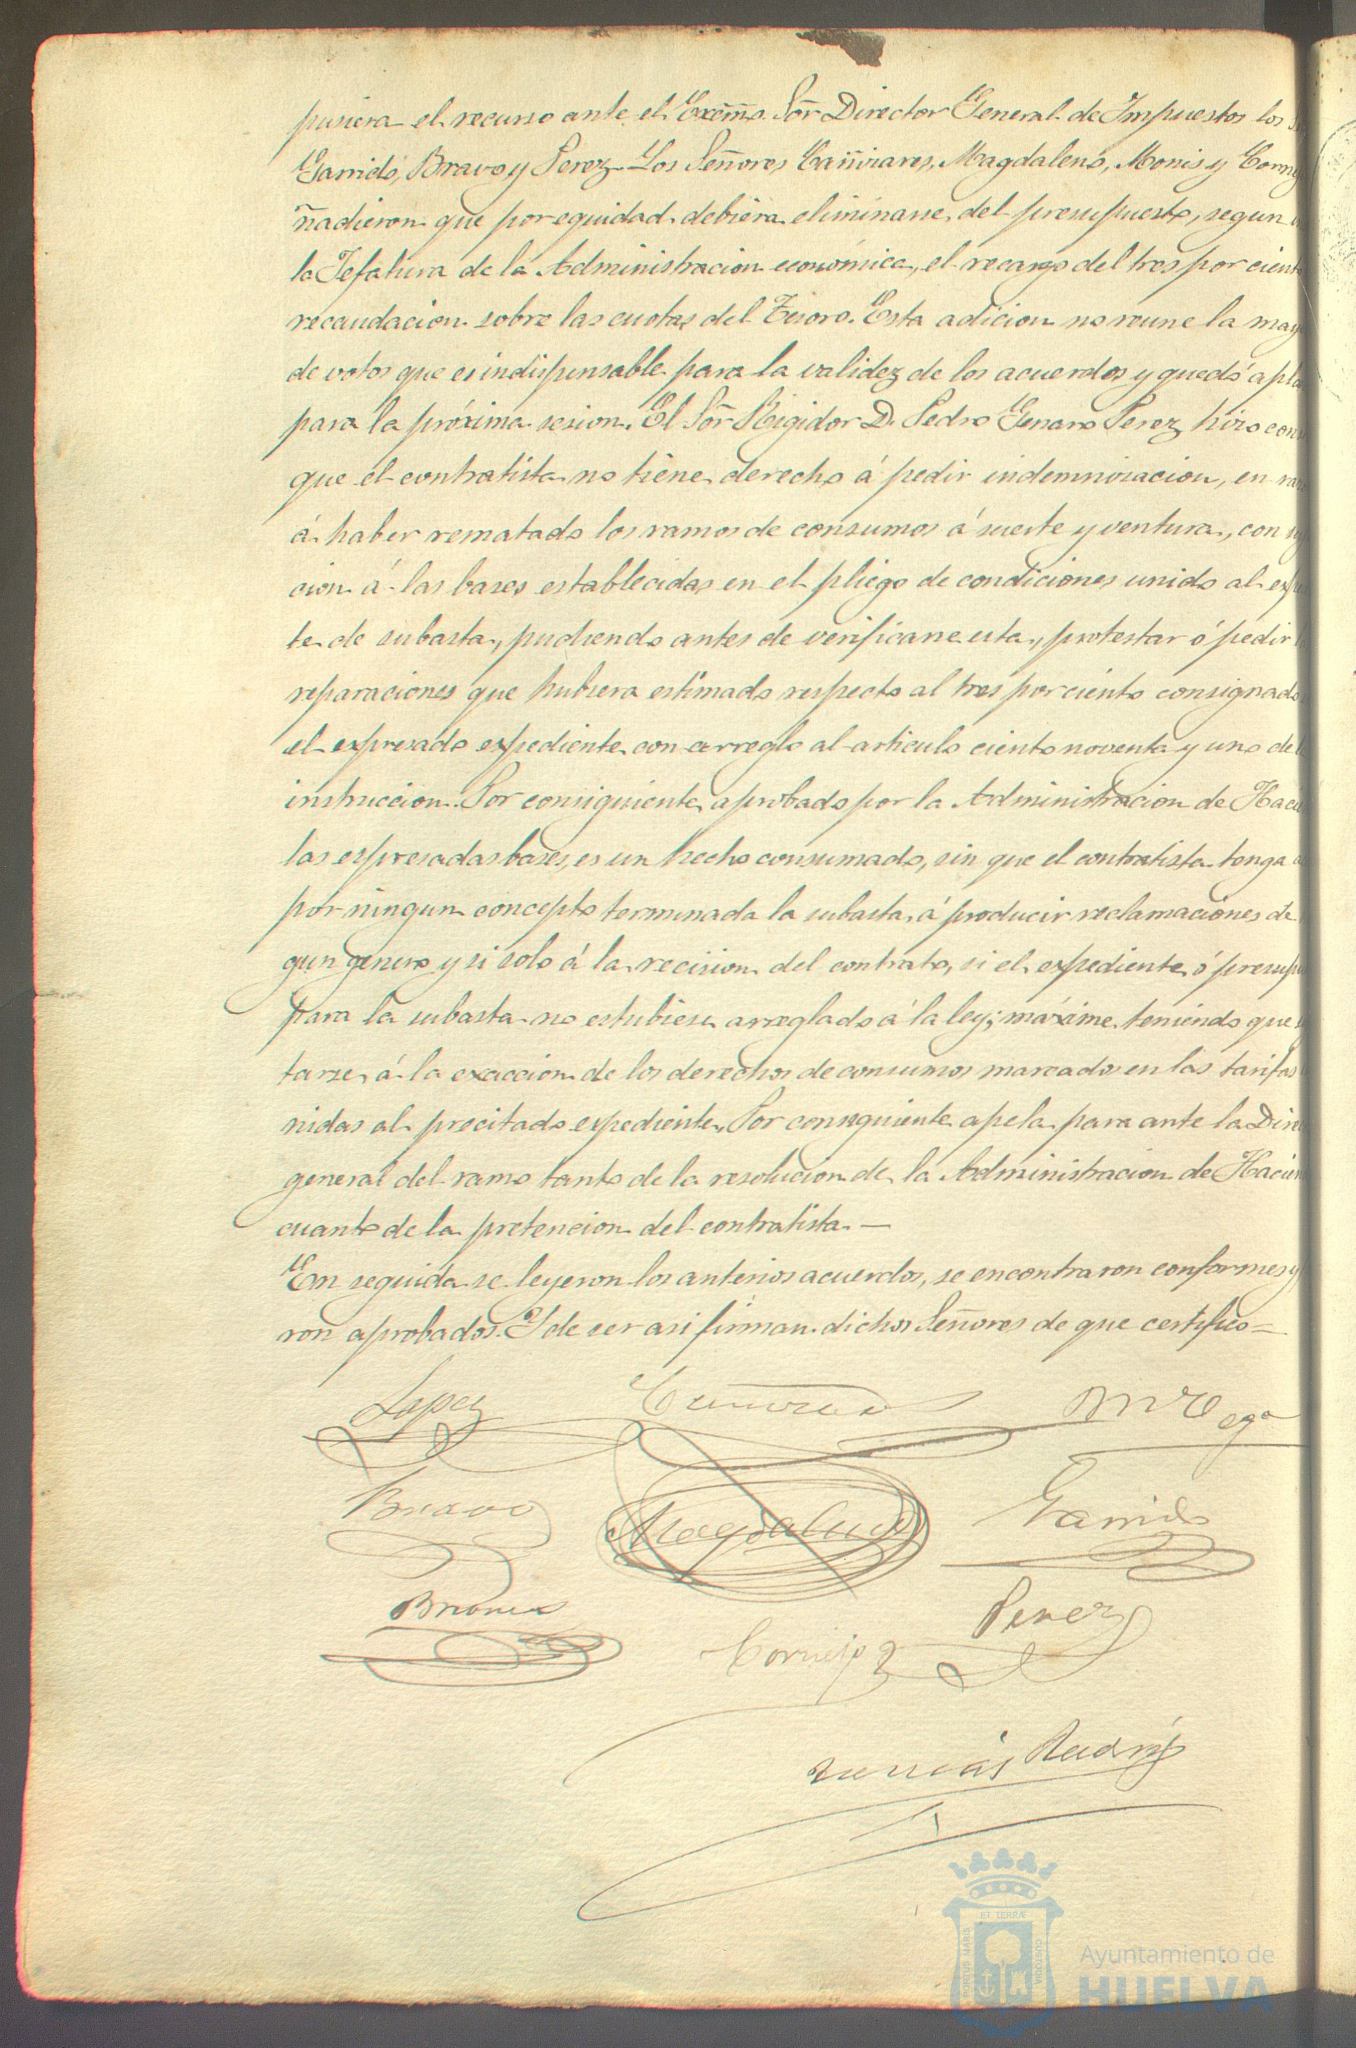 pusiera el recurso ante el Excmo. Sõr Director General de Impuestos los
Garrido, Bravo y Perez. Los Señores Cañizares, Magdaleno, Monis y
ñadieron que por equidad debiera eliminarse del presupuesto, segun
la Jefatura de la Administracion económica, el recargo del tres por ciento
recaudacion sobre las cuotas del Tesoro. Esta adicion no reune la may
de votos que es indispensable para la validez de los acuerdos y quedó apla
para la próxima sesion. El Sõr Regidor D. Pedro Genaro Perez hizo con
que el contratista no tiene derecho á pedir indemnizacion, en
á haber rematado los ramos de consumos á suerte y ventura, con
cion á las bases establecidas en el pliego de condiciones unido al exp
te de subasta, pudiendo antes de verificarse esta, protestar ó pedir
reparaciones que hubiera estimado respecto al tres por ciento consignado
el expresado expediente con arreglo al articulo ciento noventa y uno de
instruccion. Por consiguiente aprobado por la Administracion de Haci
las expresadas bases, es un hecho consumado, sin que el contratista tenga
por ningun concepto terminada la subasta, á producir reclamaciones de
gun genero y si solo á la recision del contrato, si el expediente ó presup
para la subasta no estubiese arreglado á la ley; máxime teniendo que
tarse á la exaccion de los derechos de consumos marcados en las tarifas
nidas al precitado expediente. Por consiguiente apela para ante la Direc
general del ramo tanto de la resolucion de la Administracion de Hacien
cuanto de la pretencion del contratista. —
En seguida se leyeron los anterios acuerdos, se encontraron conformes y
ron aprobados. Y de ser asi firman dichos Señores de que certifico =
Lopez
Bravo Magdaleno Garrido
Briones Cornejo Perez
ET TERRÆ
PORTUS MARIS
CUSTODIA
Ayuntamiento de
HUELVA